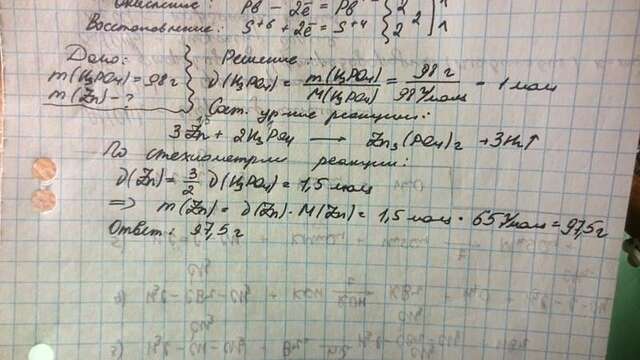 Окисление: Pb⁰ - 2ē = Pb⁺² | 2 | 1
Восстановление: S⁺⁶ + 2ē = S⁺⁴ | 2 | 2 | 1
Дано:
m(H₃PO₄) = 98 г
m(Zn) - ?
Решение:
ν(H₃PO₄) = m(H₃PO₄) / M(H₃PO₄) = 98 г / 98 г/моль = 1 моль
Сост. ур-ние реакции:
1,5
3Zn + 2H₃PO₄ → Zn₃(PO₄)₂ + 3H₂↑
По стехиометрии реакции:
ν(Zn) = 3/2 ν(H₃PO₄) = 1,5 моль
=> m(Zn) = ν(Zn) · M(Zn) = 1,5 моль · 65 г/моль = 97,5 г
Ответ: 97,5 г